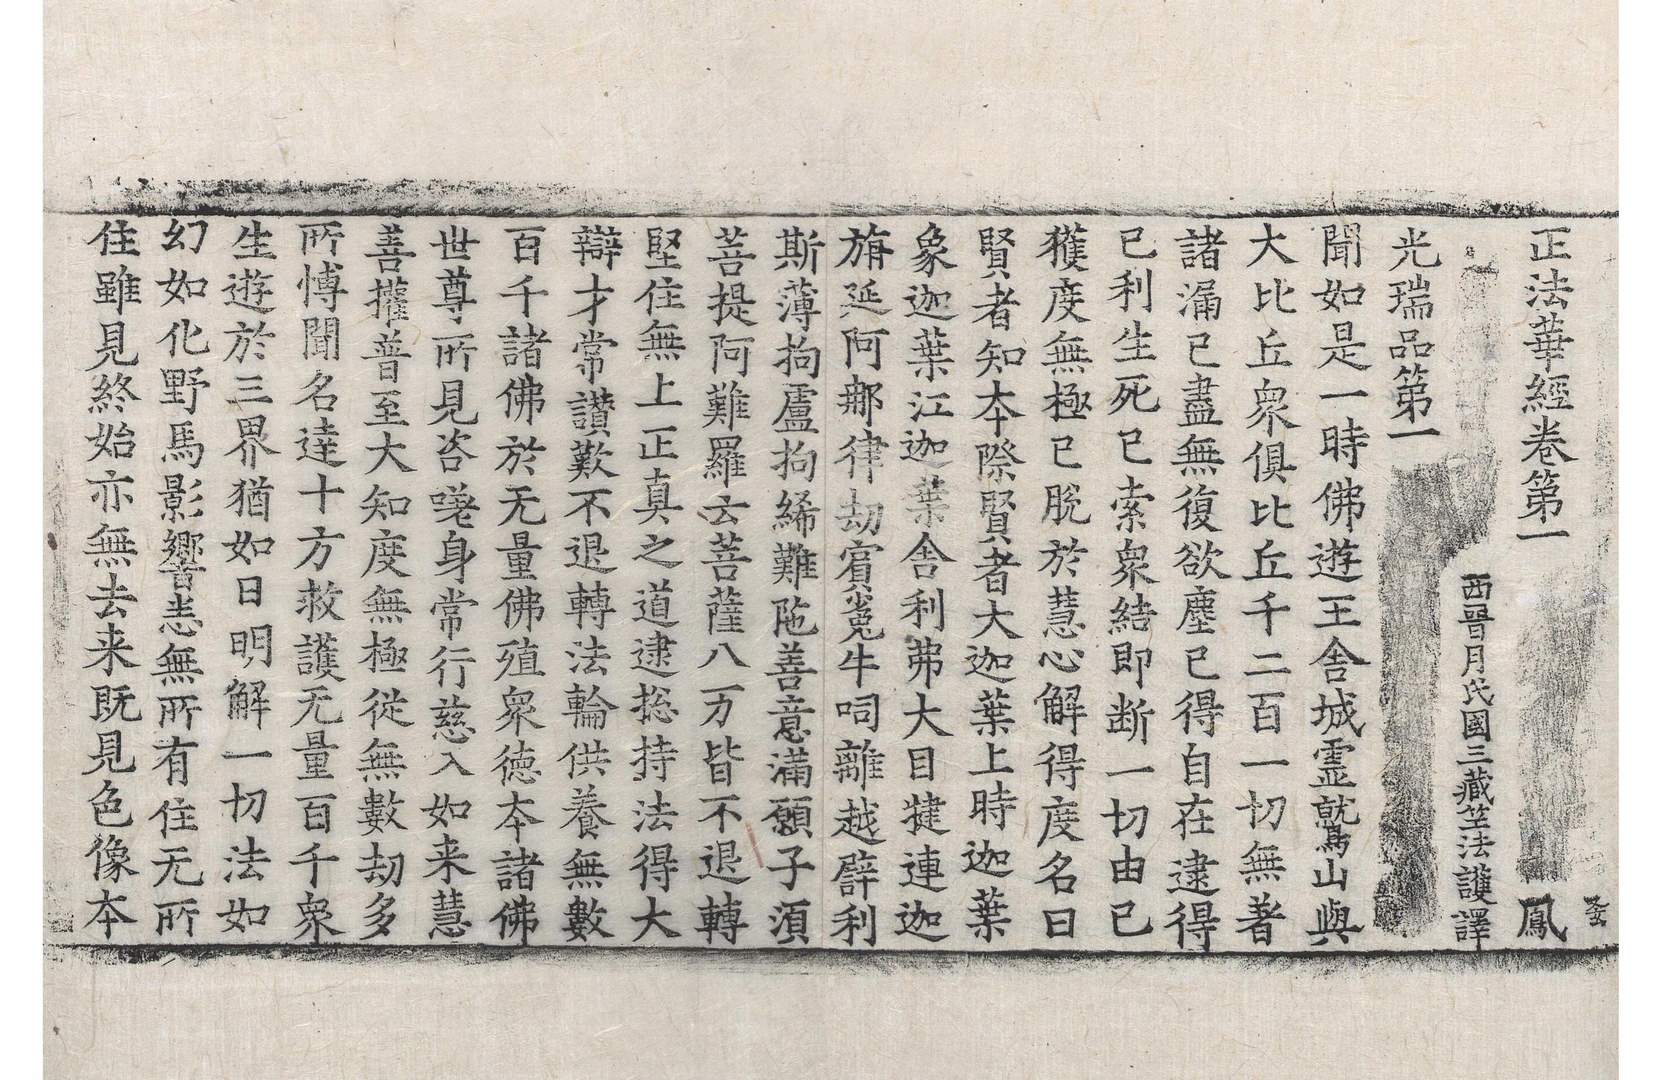 正法華經卷第一 鳳
西晉月氏國三藏竺法護譯
光瑞品第一
聞如是一時佛遊王舍城靈鷲山與
大比丘衆俱比丘千二百一切無著
諸漏已盡無復欲塵已得自在逮得
已利生死已索衆結即断一切由已
獲度無極已脫於慧心解得度名曰
賢者知本際賢者大迦葉上時迦葉
象迦葉江迦葉舍利弗大目揵連迦
旃延阿那律劫賓㝹牛呞離越譬利
斯薄拘盧拘絺難陁善意滿願子須
菩提阿難羅云菩薩八万皆不退轉
堅住無上正真之道逮捴持法得大
辯才常讃歎不退轉法輪供養無數
百千諸佛於无量佛殖衆德本諸佛
世尊所見咨嗟身常行慈入如来慧
善攉普至大知度無極從無數劫多
所愽聞名達十方救護无量百千衆
生遊於三界猶如日明解一切法如
幻如化野馬影響悉無所有住无所
住雖見終始亦無去来既見色像本